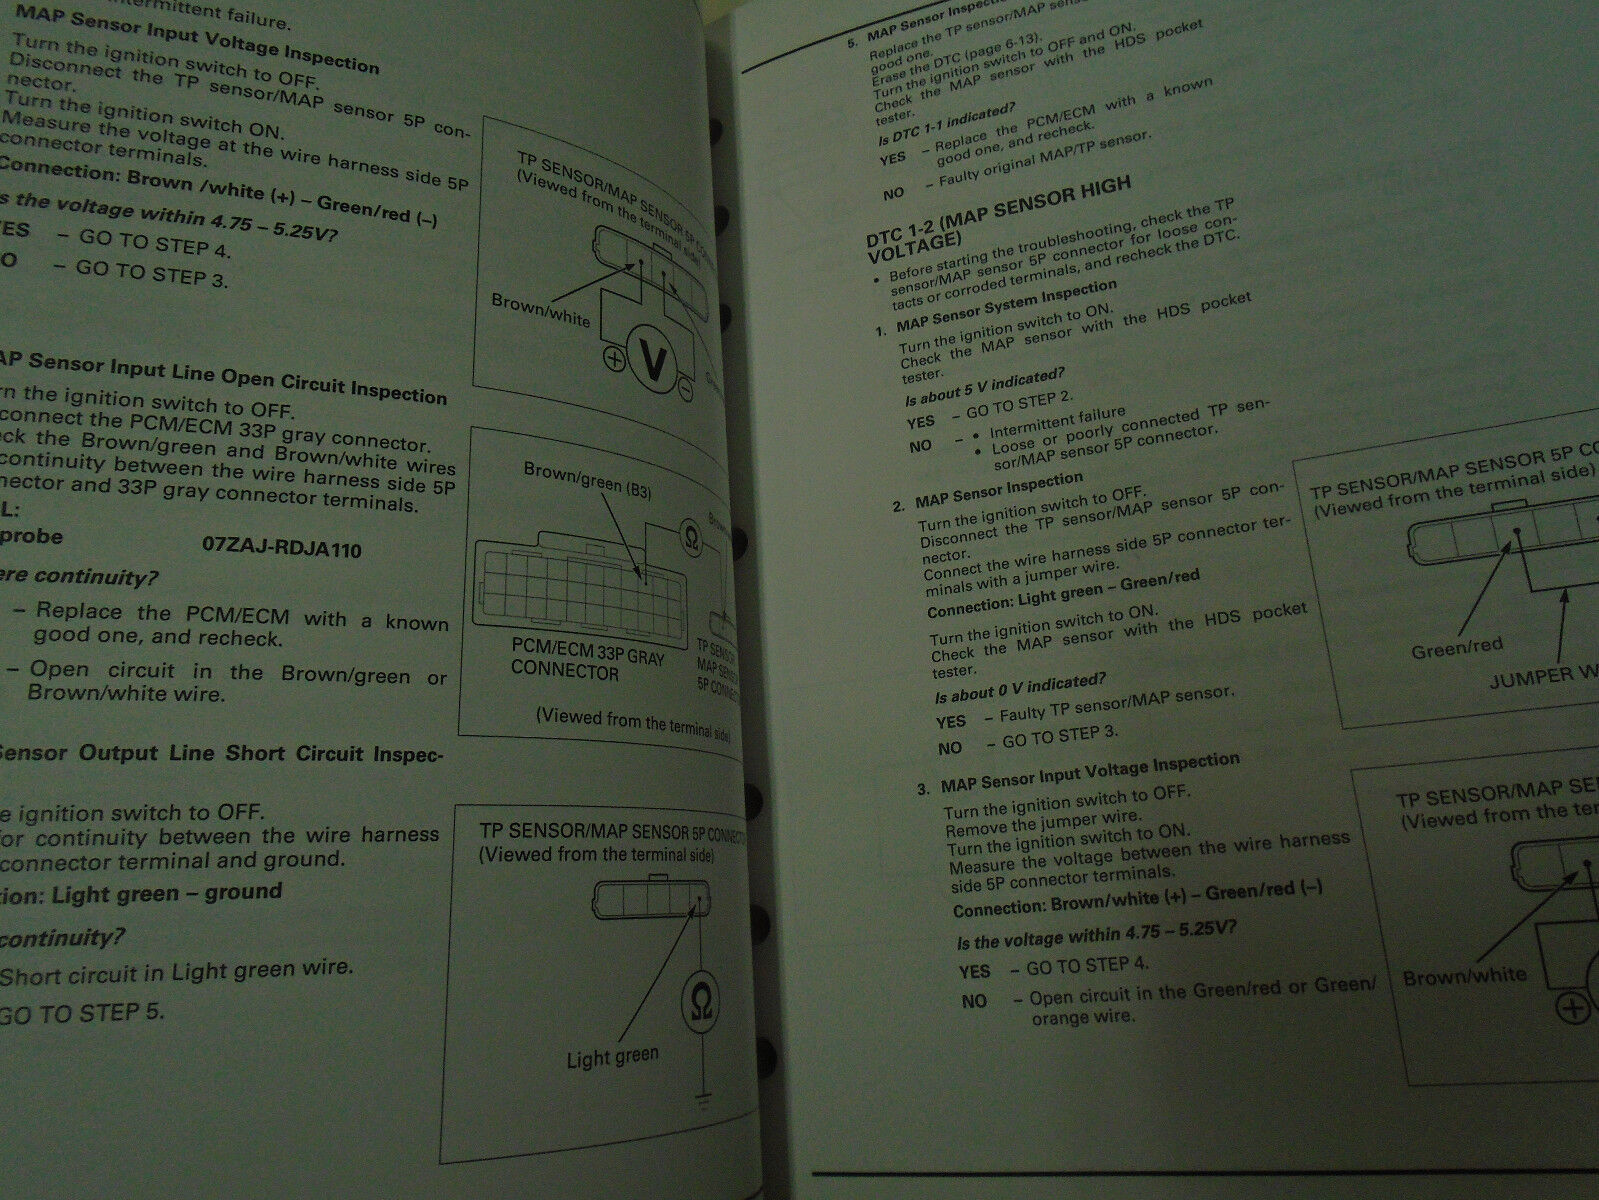 intermittent failure.
MAP Sensor Input Voltage Inspection
Turn the ignition switch to OFF.
Disconnect the TP sensor/MAP sensor 5P con-
nector.
Turn the ignition switch ON.
Measure the voltage at the wire harness side 5P
connector terminals.
Connection: Brown /white (+) – Green/red (–)
s the voltage within 4.75 – 5.25V?
ES – GO TO STEP 4.
O – GO TO STEP 3.
TP SENSOR/MAP SENSOR 5P CON
(Viewed from the terminal side)
Brown/white
V
+
–
AP Sensor Input Line Open Circuit Inspection
rn the ignition switch to OFF.
connect the PCM/ECM 33P gray connector.
ck the Brown/green and Brown/white wires
continuity between the wire harness side 5P
nector and 33P gray connector terminals.
L:
probe 07ZAJ-RDJA110
ere continuity?
– Replace the PCM/ECM with a known
good one, and recheck.
– Open circuit in the Brown/green or
Brown/white wire.
Brown/green (B3)
Ω
PCM/ECM 33P GRAY
CONNECTOR
TP SENSOR
MAP SENSO
5P CONNEC
(Viewed from the terminal side)
Sensor Output Line Short Circuit Inspec-
e ignition switch to OFF.
for continuity between the wire harness
connector terminal and ground.
tion: Light green – ground
continuity?
Short circuit in Light green wire.
GO TO STEP 5.
TP SENSOR/MAP SENSOR 5P CONNECTO
(Viewed from the terminal side)
Ω
Light green
5. MAP Sensor Inspectio
Replace the TP sensor/MAP sens
good one.
Erase the DTC (page 6-13).
Turn the ignition switch to OFF and ON.
Check the MAP sensor with the HDS pocket
tester.
Is DTC 1-1 indicated?
YES – Replace the PCM/ECM with a known
good one, and recheck.
NO – Faulty original MAP/TP sensor.
DTC 1-2 (MAP SENSOR HIGH
VOLTAGE)
• Before starting the troubleshooting, check the TP
sensor/MAP sensor 5P connector for loose con-
tacts or corroded terminals, and recheck the DTC.
1. MAP Sensor System Inspection
Turn the ignition switch to ON.
Check the MAP sensor with the HDS pocket
tester.
Is about 5 V indicated?
YES – GO TO STEP 2.
NO – • Intermittent failure
• Loose or poorly connected TP sen-
sor/MAP sensor 5P connector.
2. MAP Sensor Inspection
Turn the ignition switch to OFF.
Disconnect the TP sensor/MAP sensor 5P con-
nector.
Connect the wire harness side 5P connector ter-
minals with a jumper wire.
Connection: Light green – Green/red
Turn the ignition switch to ON.
Check the MAP sensor with the HDS pocket
tester.
Is about 0 V indicated?
YES – Faulty TP sensor/MAP sensor.
NO – GO TO STEP 3.
TP SENSOR/MAP SENSOR 5P CO
(Viewed from the terminal side)
Green/red
JUMPER W
3. MAP Sensor Input Voltage Inspection
Turn the ignition switch to OFF.
Remove the jumper wire.
Turn the ignition switch to ON.
Measure the voltage between the wire harness
side 5P connector terminals.
Connection: Brown/white (+) – Green/red (–)
Is the voltage within 4.75 – 5.25V?
YES – GO TO STEP 4.
NO – Open circuit in the Green/red or Green/
orange wire.
TP SENSOR/MAP SE
(Viewed from the ter
Brown/white
+